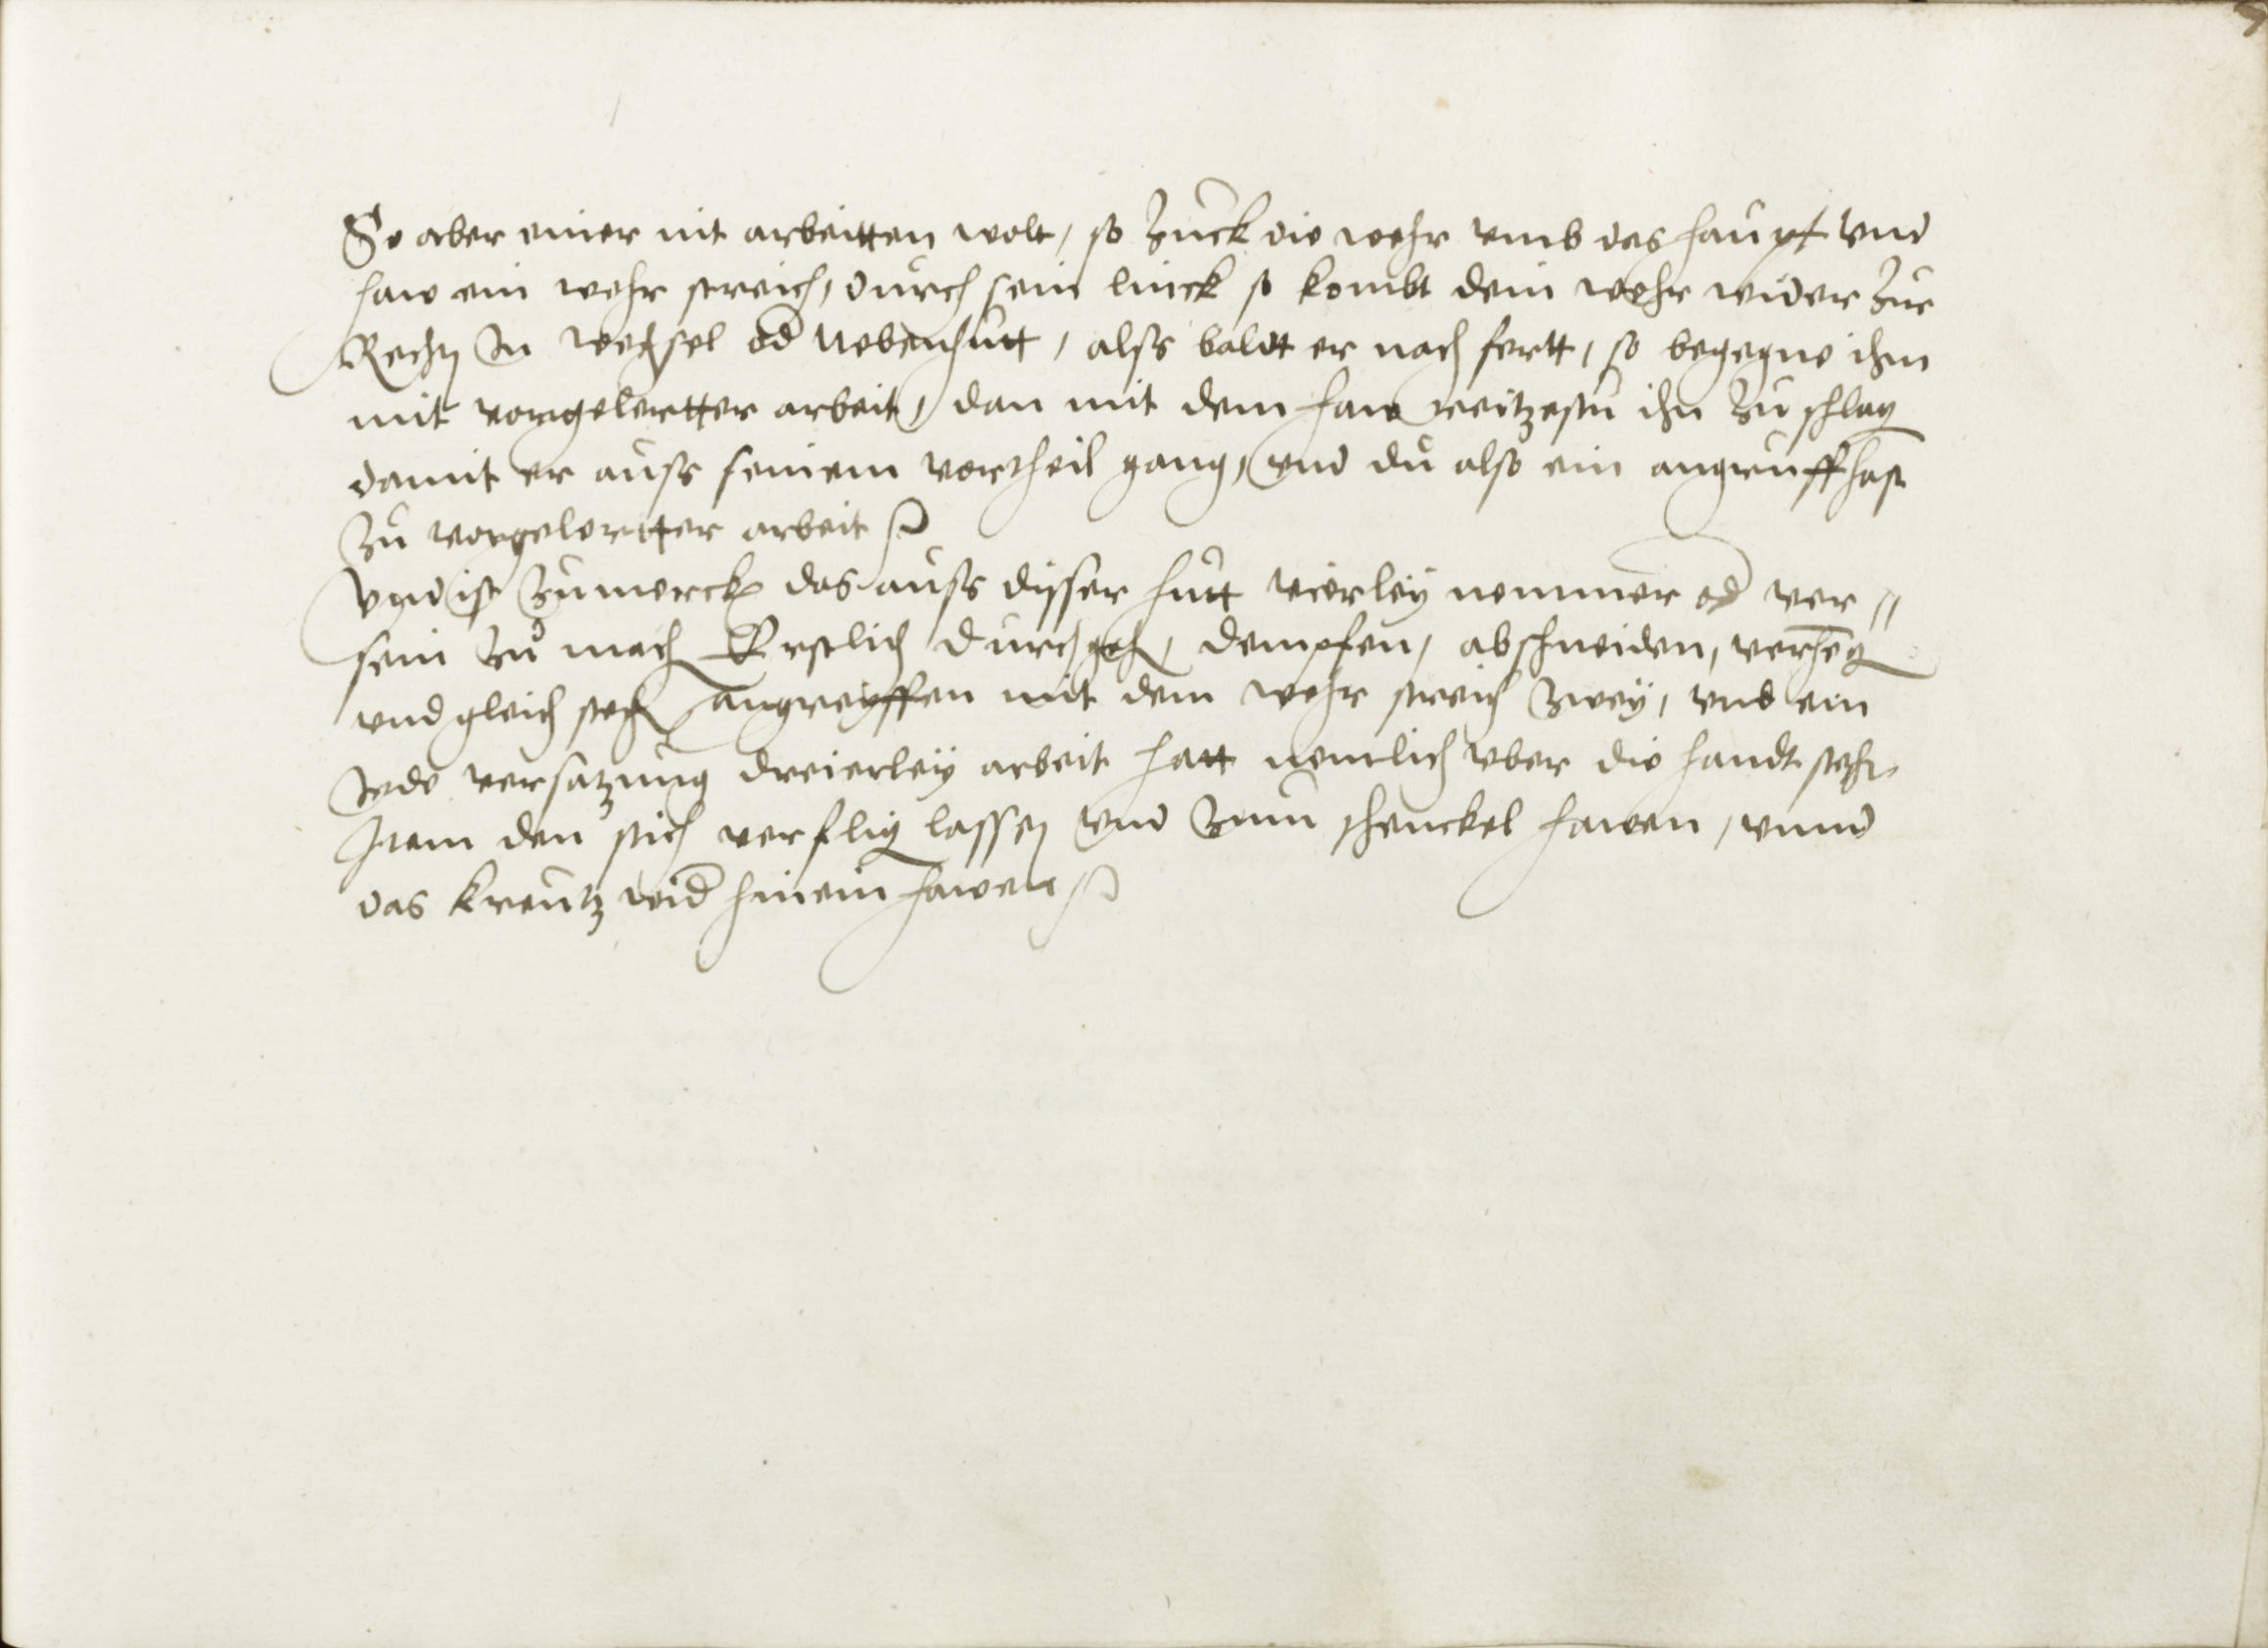 So aber einer nit arbeitten wolt, so Zuck die wehr vmb das haupt vnd
haw ein wehr streich, durch sein linck so kombt dein wehr wider Zur
Rechtn In wechsel od Nebenhutt, alss baldt er nach fertt, so begegne ihm
mit vorgelertter arbeit, dan mit dem haw reitzestu ihn Zu schlag
damit er auss seinem vortheil gang, vnd du also ein angruff hast
Zu vorgelertter arbeit
Vnd ist Zumerck das auss disser hutt vierley nemmer od ver //
sein Zu mach Erstlich durchgeh, dempfen, abschneiden, verheng
vnd gleich stech angreyffen mit dem wehr streich Zwey, vnd ein
Jede versatzung dreierley arbeit hatt nemlich vber die handt steche
Item den stich verflig lassen vnd Zum schenckel hawen, vnnd
das kreutz wid hinein hawen